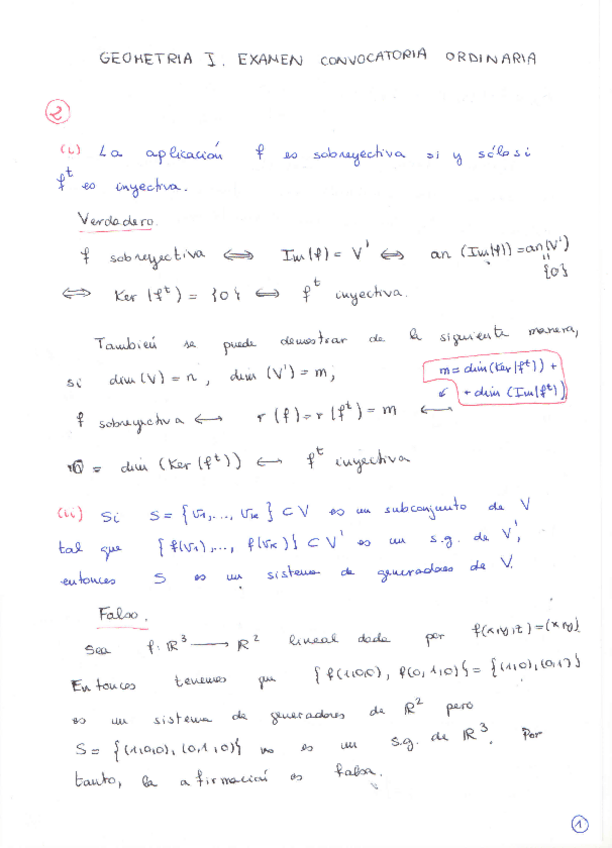 GEOMETRIA I. EXAMEN CONVOCATORIA ORDINARIA
2
(i) La aplicación f es sobreyectiva si y sólo si
f^t es inyectiva.
Verdadero.
f sobreyectiva ⟺ Im(f) = V' ⟺ an (Im(f)) = an(V')
{0}
⟺ Ker (f^t) = {0} ⟺ f^t inyectiva.
También se puede demostrar de la siguiente manera,
si dim(V) = n, dim(V') = m,
m = dim(Ker(f^t)) +
+ dim (Im(f^t))
f sobreyectiva ⟷ r(f) = r(f^t) = m ⟷
0 = dim (Ker(f^t)) ⟷ f^t inyectiva
(ii) Si S = {v1, ..., vk} ⊂ V es un subconjunto de V
tal que {f(v1), ..., f(vk)} ⊂ V' es un s.g. de V',
entonces S es un sistema de generadores de V.
Falso.
Sea f: R^3 ⟶ R^2 lineal dada por f(x,y,z) = (x,y).
Entonces tenemos que {f(1,0,0), f(0,1,0)} = {(1,0), (0,1)}
es un sistema de generadores de R^2 pero
S = {(1,0,0), (0,1,0)} no es un s.g. de R^3. Por
tanto, la afirmación es falsa.
1